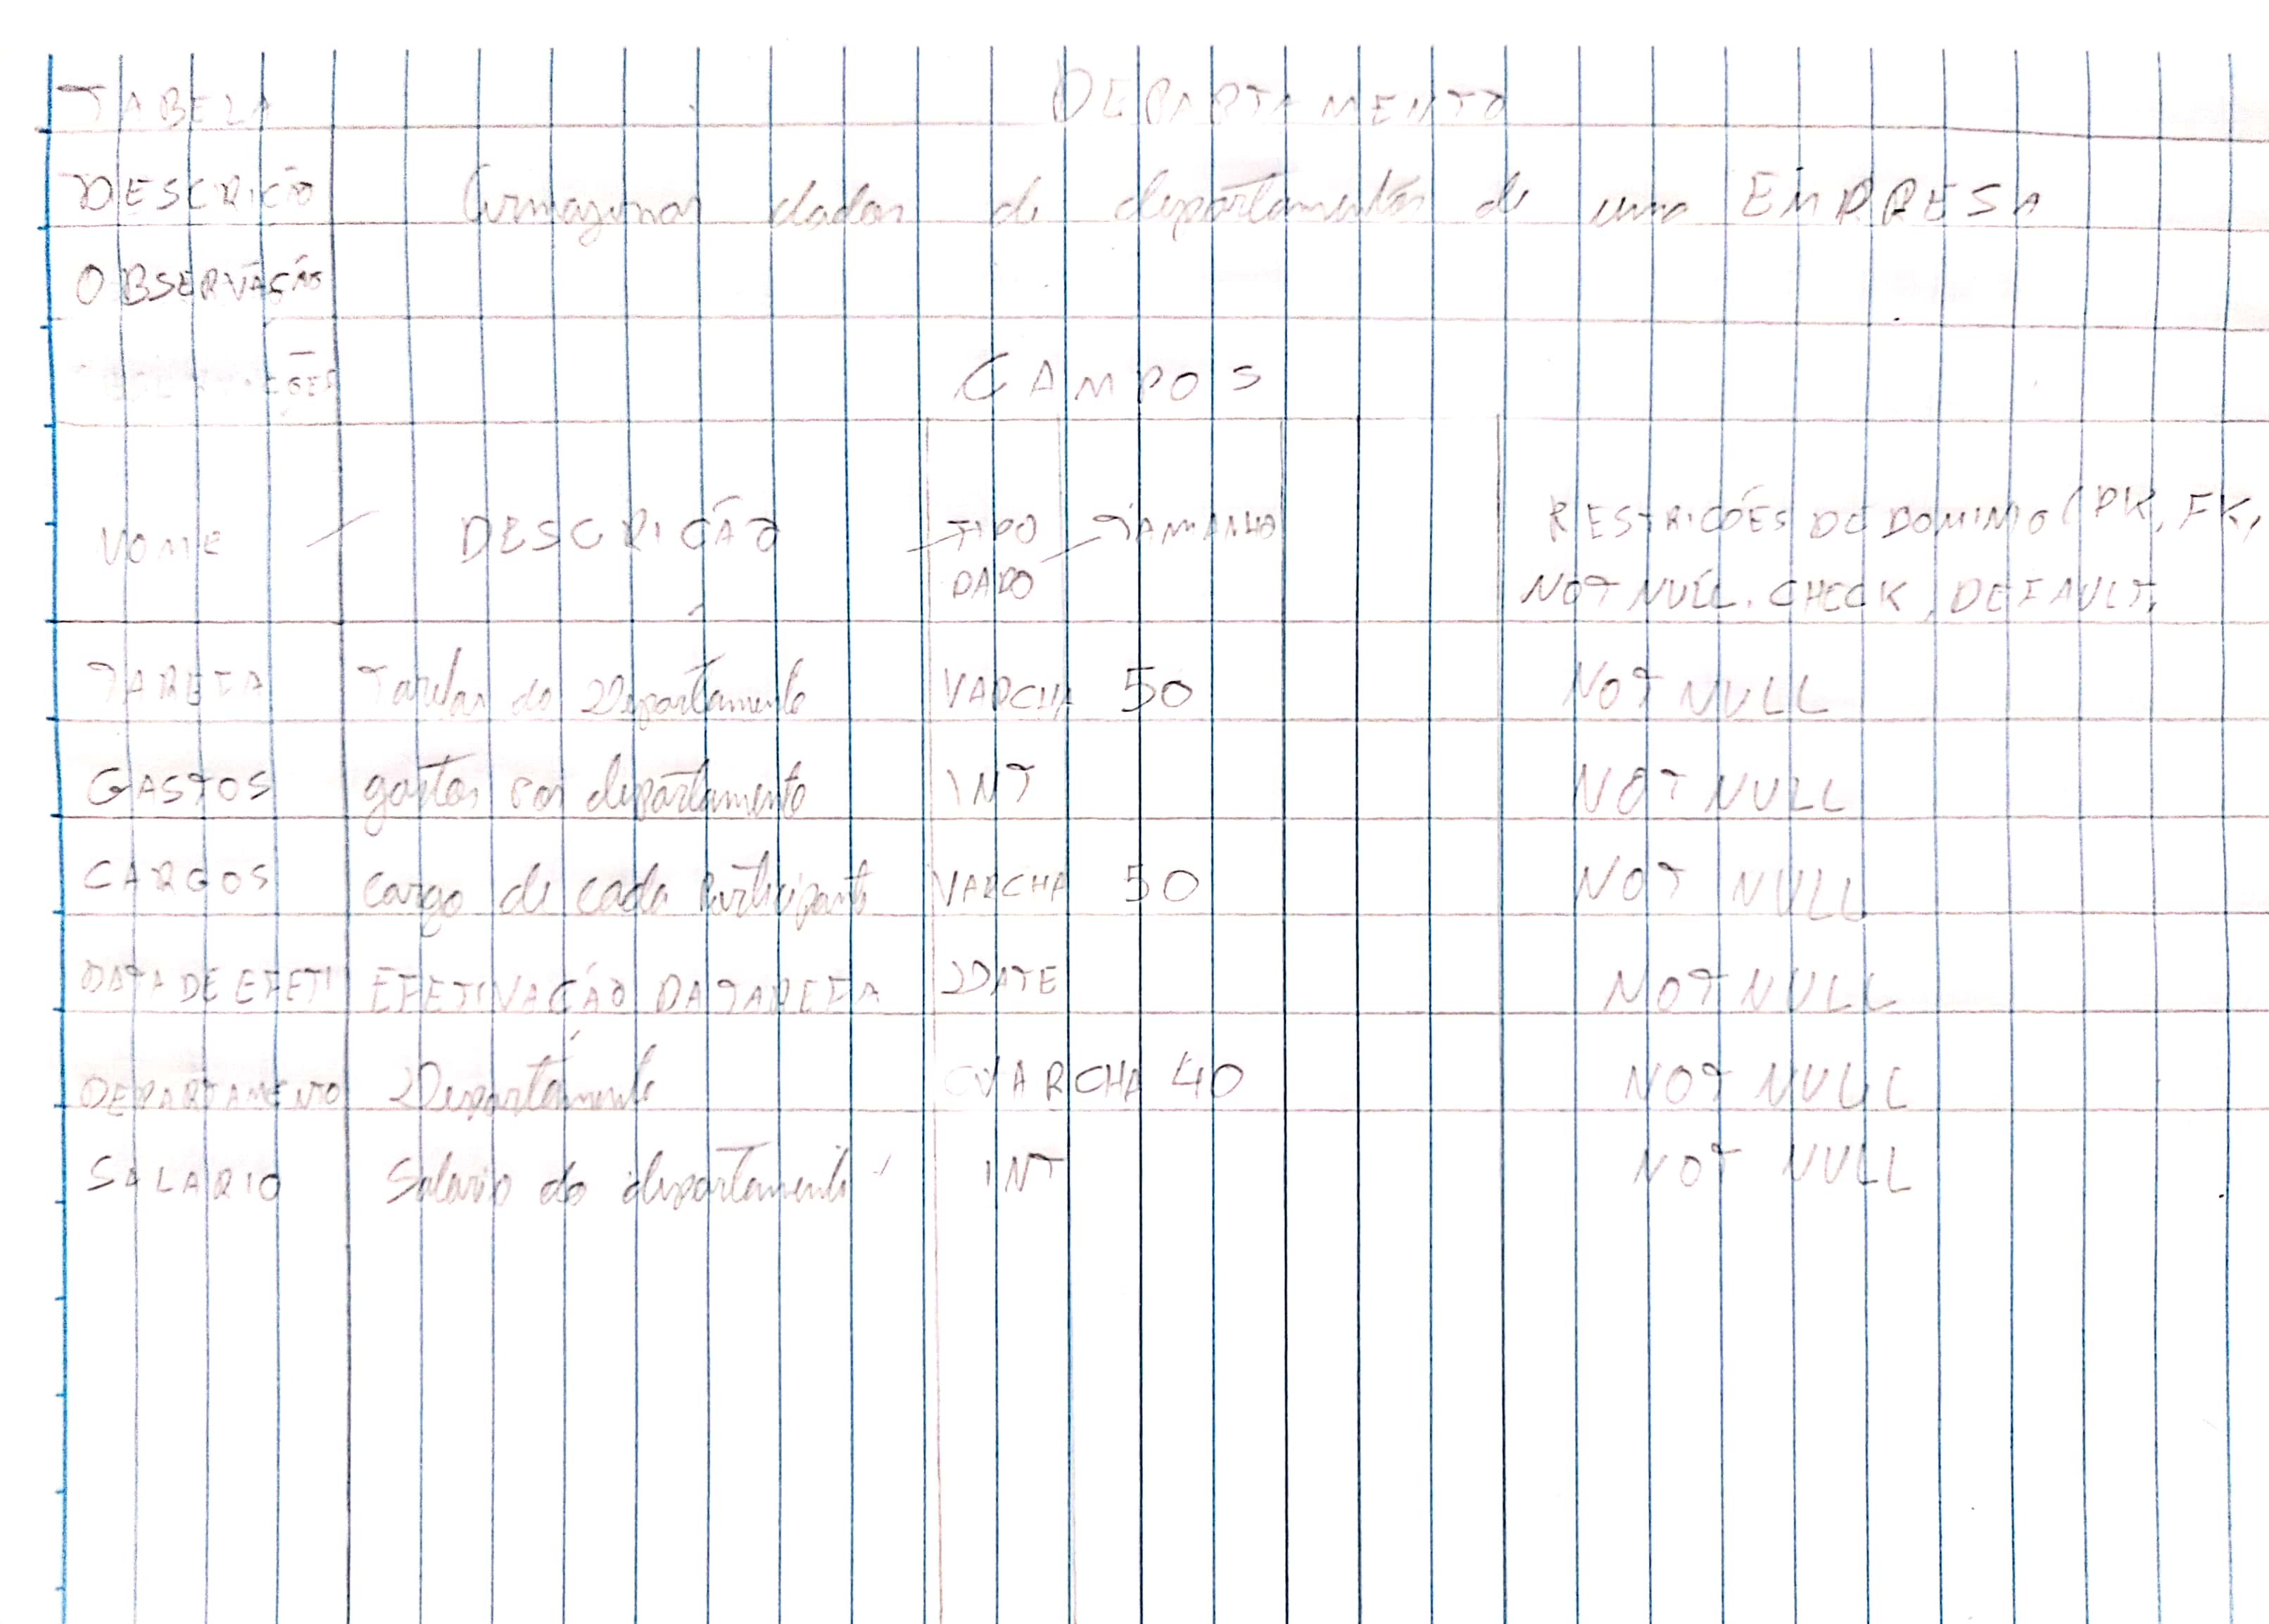 TABELA DEPARTAMENTO
DESCRIÇÃO Armazenar dados de departamentos de uma EMPRESA
OBSERVAÇÃO
CAMPOS
NOME DESCRIÇÃO TIPO TAMANHO RESTRIÇÕES DE DOMINIO (PK, FK,
DADO NOT NULL. CHECK, DEFAULT,
TAREFA Tarefas do Departamento VARCHA 50 NOT NULL
GASTOS gastos por departamento INT NOT NULL
CARGOS cargo de cada participante VARCHA 50 NOT NULL
DATA DE EFETI EFETIVAÇÃO DA TAREFA DATE NOT NULL
DEPARTAMENTO Departamento VARCHA 40 NOT NULL
SALARIO Salario do departamento INT NOT NULL